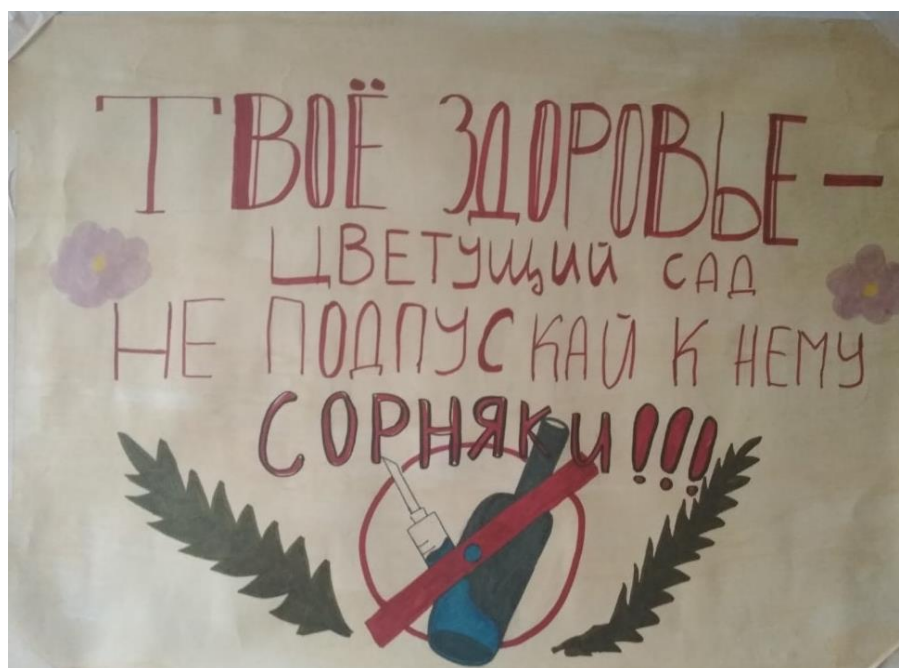 ТВОЁ ЗДОРОВЬЕ –
ЦВЕТУЩИЙ САД
НЕ ПОДПУСКАЙ К НЕМУ
СОРНЯКИ!!!